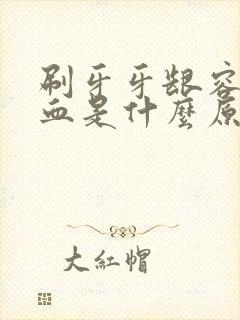 刷牙牙龈容
血是什麼原
大红帽